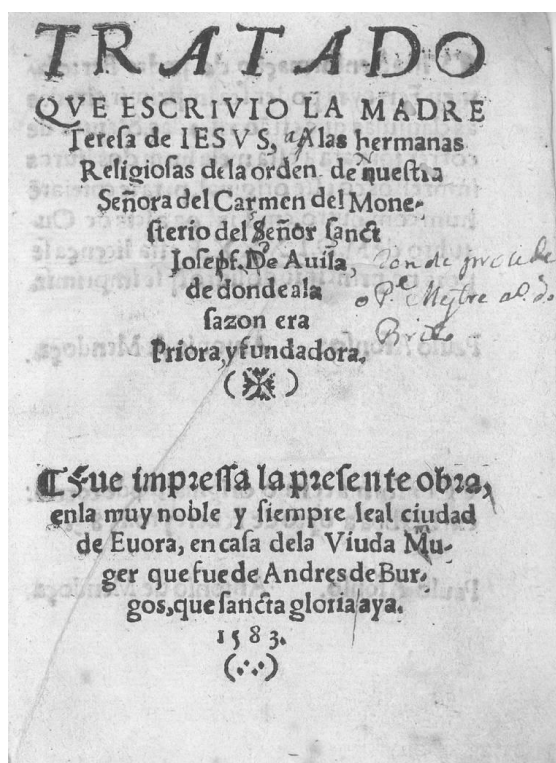 TRATADO
QVE ESCRIVIO LA MADRE
Teresa de IESVS, A las hermanas
Religiosas dela orden de nuestra
Señora del Carmen del Mone-
sterio del Señor sanct
Joseph. De Auila,
de donde ala
sazon era
Priora, y fundadora.
(✠)
Fue impressa la presente obra,
enla muy noble y siempre leal ciudad
de Euora, en casa dela Viuda Mu-
ger que fue de Andres de Bur-
gos, que sancta gloria aya.
1583.